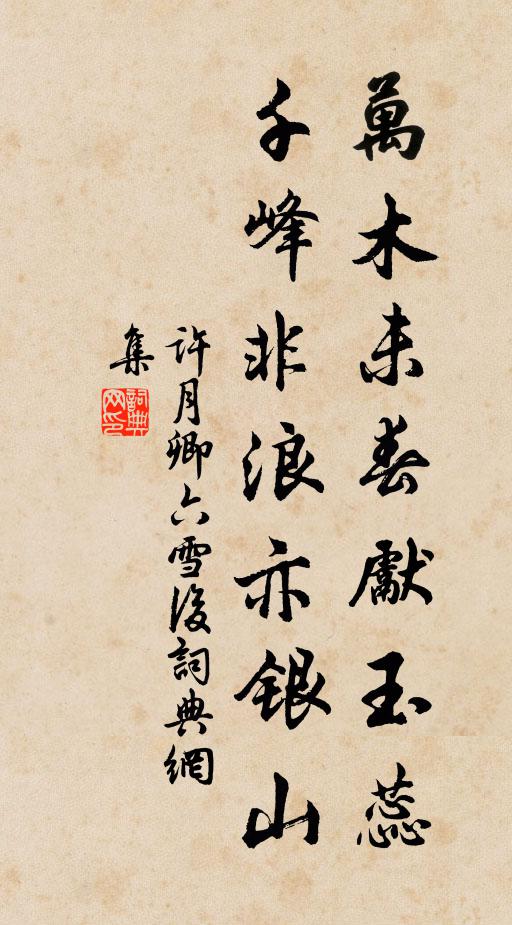 萬木未春獻玉蕊
千峰非浪亦銀山
許月卿六雪後詞典網
集
詞典网印